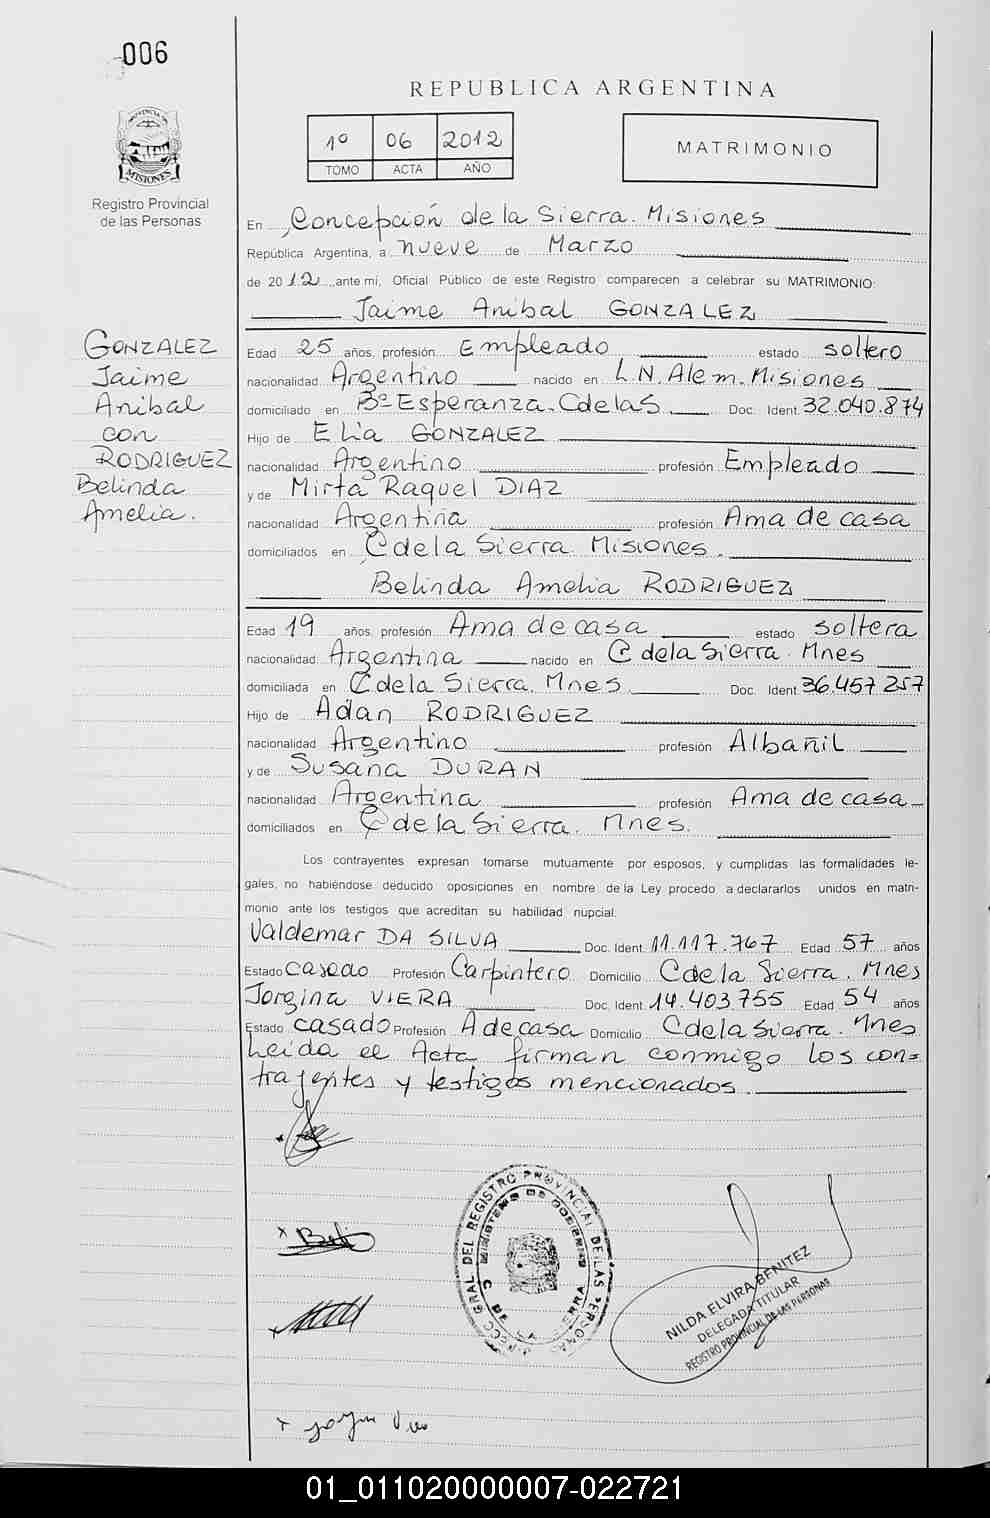 006
REPUBLICA ARGENTINA
1º 06 2012
TOMO ACTA AÑO
MATRIMONIO
PROVINCIA DE
MISIONES
Registro Provincial
de las Personas
En Concepción de la Sierra. Misiones
República Argentina, a nueve de Marzo
de 2012 ante mi, Oficial Público de este Registro comparecen a celebrar su MATRIMONIO:
Jaime Anibal GONZALEZ
GONZALEZ
Jaime
Anibal
con
RODRIGUEZ
Belinda
Amelia.
Edad 25 años, profesión Empleado estado soltero
nacionalidad Argentino nacido en L.N. Alem. Misiones
domiciliado en Bº Esperanza. CdelaS. Doc. Ident. 32.040.874
Hijo de Elia GONZALEZ
nacionalidad Argentino profesión Empleado
y de Mirta Raquel DIAZ
nacionalidad Argentina profesión Ama de casa
domiciliados en C dela Sierra Misiones.
Belinda Amelia RODRIGUEZ
Edad 19 años, profesión Ama de casa estado soltera
nacionalidad Argentina nacido en C dela Sierra. Mnes
domiciliada en C dela Sierra. Mnes. Doc. Ident. 36.457.257
Hijo de Adan RODRIGUEZ
nacionalidad Argentino profesión Albañil
y de Susana DURAN
nacionalidad Argentina profesión Ama de casa
domiciliados en C de la Sierra. Mnes.
Los contrayentes expresan tomarse mutuamente por esposos, y cumplidas las formalidades le-
gales, no habiéndose deducido oposiciones en nombre de la Ley procedo a declararlos unidos en matri-
monio ante los testigos que acreditan su habilidad nupcial.
Valdemar DA SILVA Doc. Ident. 11.117.767 Edad 57 años
Estado Casado Profesión Carpintero Domicilio C de la Sierra. Mnes
Jorgina VIERA Doc. Ident. 14.403.755 Edad 54 años
Estado casado Profesión A de casa Domicilio C de la Sierra. Mnes
Leida el Acta firman conmigo los con=
trayentes y testigos mencionados.
GRAL. DEL REGISTRO PROVINCIAL DE LAS PERSONAS
MINISTERIO DE GOBIERNO
NILDA ELVIRA BENITEZ
DELEGADA TITULAR
REGISTRO PROVINCIAL DE LAS PERSONAS
01_011020000007-022721